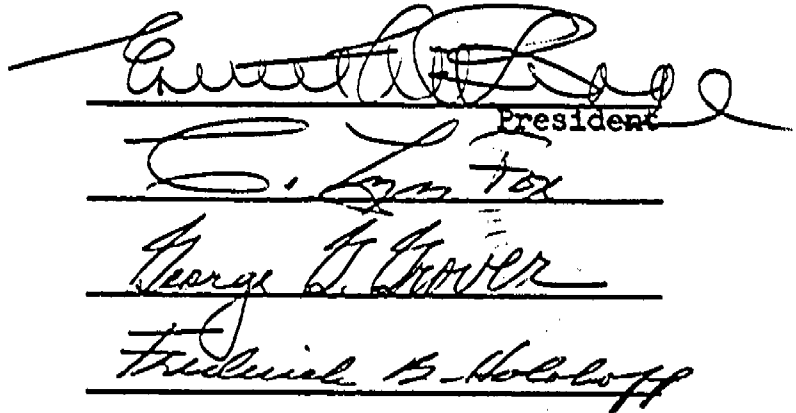 President
C. Lyn Fox
George G. Grover
Frederick B. Holoboff